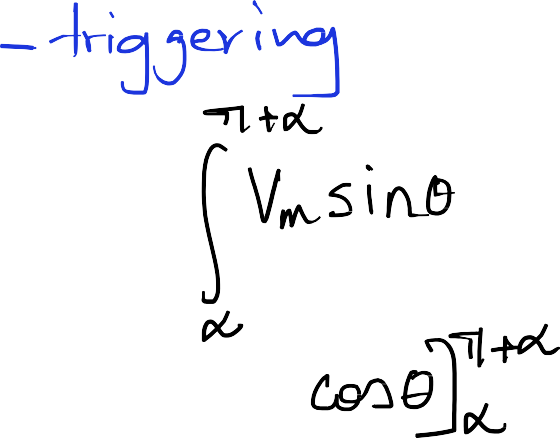 - triggering
π+α
∫ Vm sinθ
α
cosθ]π+α
α